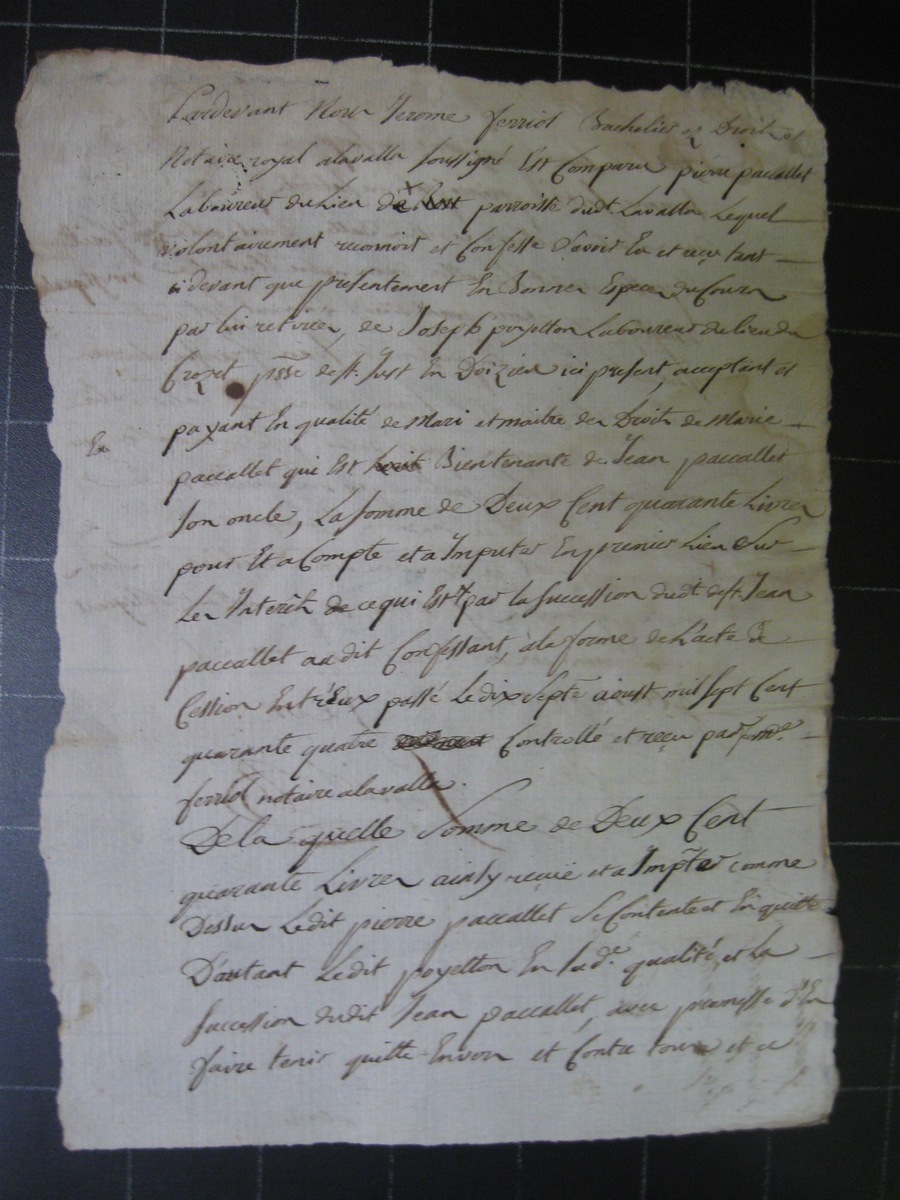 Pardevant Nous Jerome ferriol Bachelier es Droit et
Notaire royal alavalla soussigné Est Comparu pierre paccallet
Laboureur du Lieu de parroisse dudt. Lavalla Lequel
volontairement reconnoit et Confesse d'avoir Eu et reçu tant
cidevant que présentement En bonnes Especes du Cours
par lui retirées, de Joseph poyetton Laboureur du lieu du
Crozet psse de st. Just En Doizieu ici présent, acceptant et
payant En qualité de Mari et maitre des Droits de Marie
En
paccallet qui Est Bientenante de Jean paccallet
son oncle, La somme de Deux Cent quarante Livres
pour Et a Compte et a Imputer En premier Lieu Sur
Les Interêts de ce qui Est par la succession dudt. deft. Jean
paccallet audit Confessant, ala forme de L'acte de
Cession Entr'Eux passé Le dix septe aoust mil sept Cent
quarante quatre Controllé et reçu par me.
ferriol notaire alavalla.
De la quelle Somme de Deux Cent
quarante Livres ainsy reçuë et a Impter comme
Dessus Ledit pierre paccallet se Contente et En quitte
D'autant Ledit poyetton En sade. qualité, et La
succession dudit Jean paccallet, avec promesse d'En
faire tenir quitte Envers et Contre tous et a